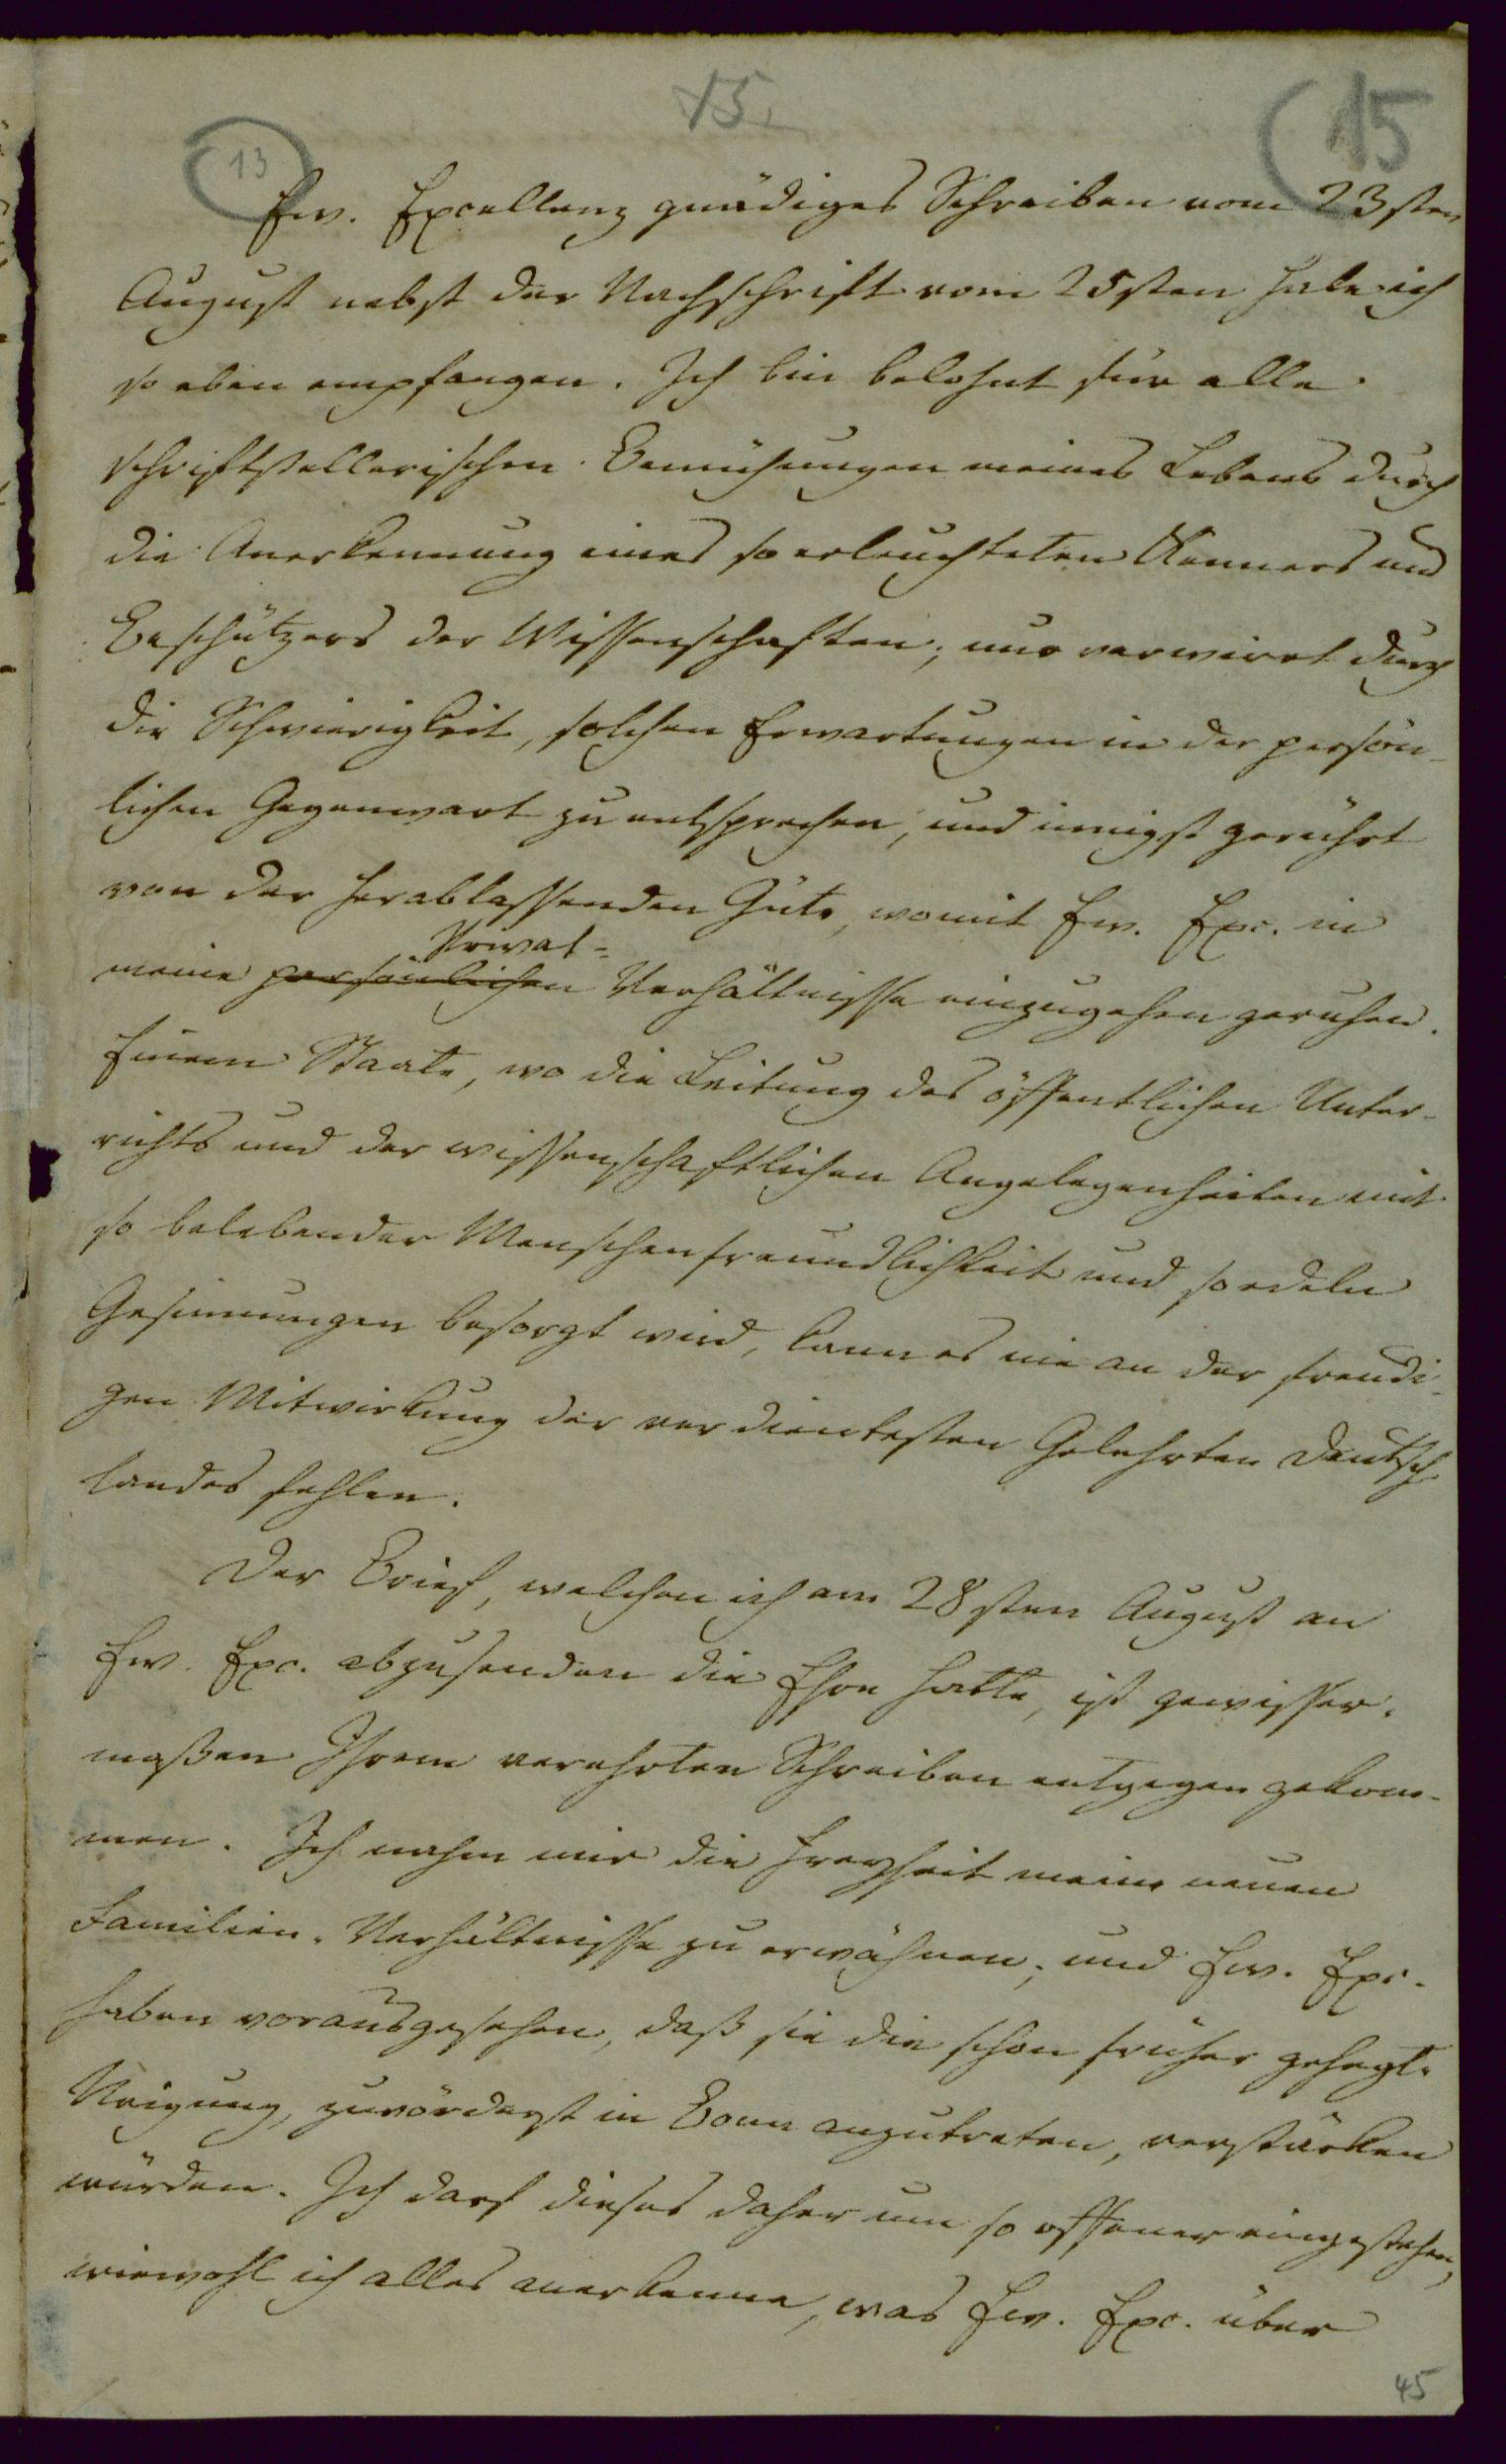 15.
15
13
Ew. Excellenz gnädiges Schreiben vom 23sten
August nebst der Nachschrift vom 25sten habe ich
so eben empfangen. Ich bin belohnt für alle
schriftstellerischen Bemühungen meines Lebens durch
die Anerkennung eines so erleuchteten Kenners und
Beschützers der Wissenschaften; nur verwirrt durch
die Schwierigkeit, solchen Erwartungen in der persön-
lichen Gegenwart zu entsprechen, und innigst gerührt
von der herablassenden Güte, womit Ew. Exc. in
Privat-
meine persönlichen Verhältnisse einzugehen geruhen.
Einem Staate, wo die Leitung des öffentlichen Unter-
richts und der wissenschaftlichen Angelegenheiten mit
so belebender Menschenfreundlichkeit und so edeln
Gesinnungen besorgt wird, kann es nie an der freudi-
gen Mitwirkung der verdientesten Gelehrten Deutsch-
landes fehlen.
Der Brief, welchen ich am 28sten August an
Ew. Exc. abzusenden die Ehre hatte, ist gewisser-
maßen Ihrem verehrten Schreiben entgegen gekom-
men. Ich nahm mir die Freyheit meine neuen
Familien-Verhältnisse zu erwähnen; und Ew. Exc.
haben vorausgesehen, daß sie die schon früher gehegte
Neigung, zuvörderst in Bonn anzutreten, verstärken
würden. Ich darf dieses daher um so offener eingestehen,
wiewohl ich alles anerkenne, was Ew. Exc. über
45